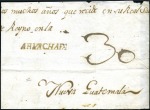 muchos años que reside en su Real
Reyno, en la
AHUACHAPA
30
Nueva Guatemala